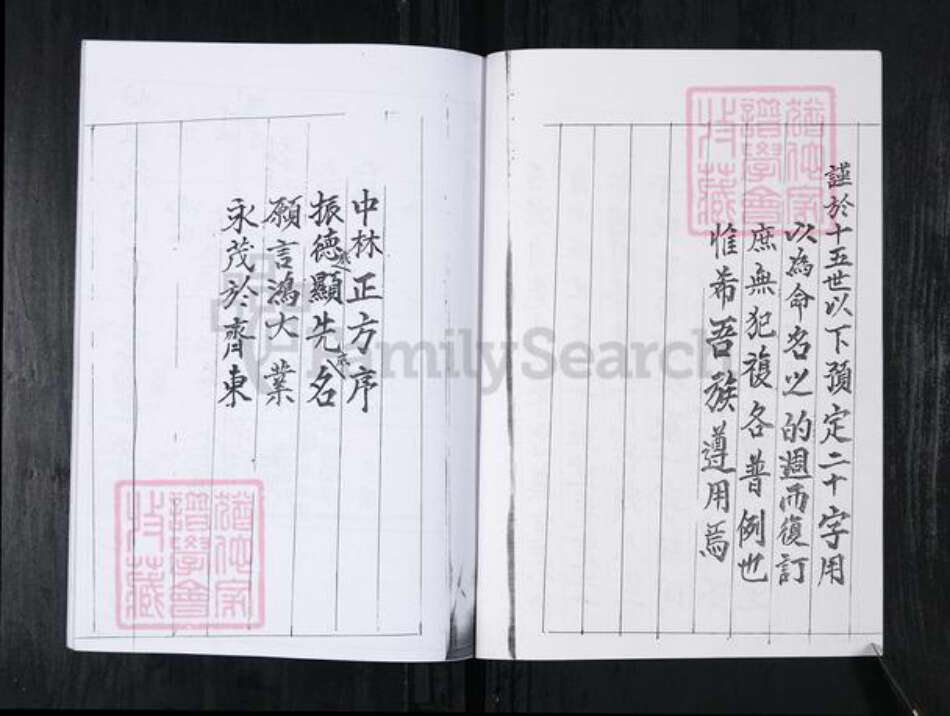 謹於十五世以下預定二十字用
以為命名之的週而復訂
庶無犯複各普例也
惟希吾族遵用焉
中林正方序
振德顯先名
願言鴻大業
永茂於齊東
FamilySearch